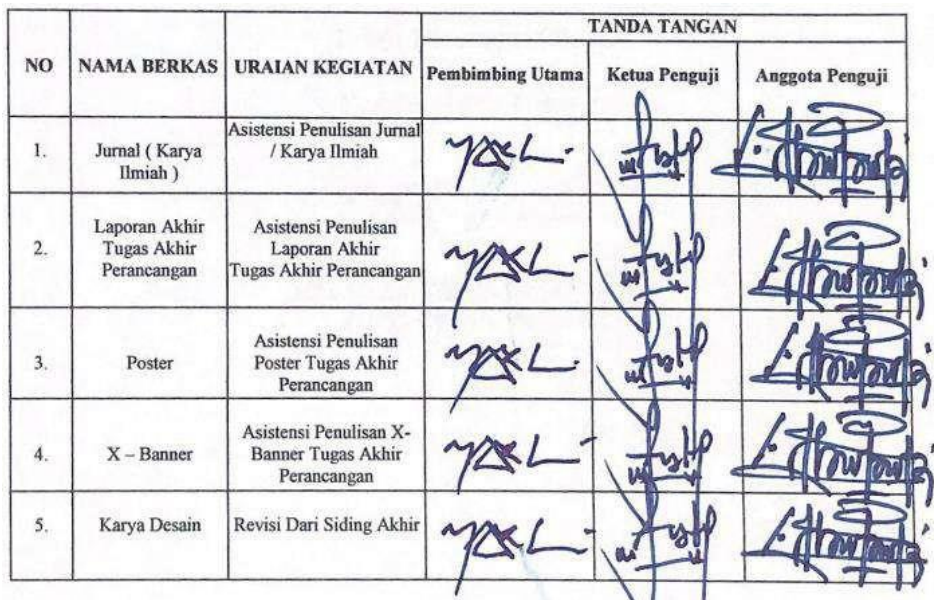 TANDA TANGAN
NO NAMA BERKAS URAIAN KEGIATAN Pembimbing Utama Ketua Penguji Anggota Penguji
1. Jurnal ( Karya
Ilmiah )
Asistensi Penulisan Jurnal
/ Karya Ilmiah
2. Laporan Akhir
Tugas Akhir
Perancangan
Asistensi Penulisan
Laporan Akhir
Tugas Akhir Perancangan
3. Poster
Asistensi Penulisan
Poster Tugas Akhir
Perancangan
4. X – Banner
Asistensi Penulisan X-
Banner Tugas Akhir
Perancangan
5. Karya Desain Revisi Dari Siding Akhir